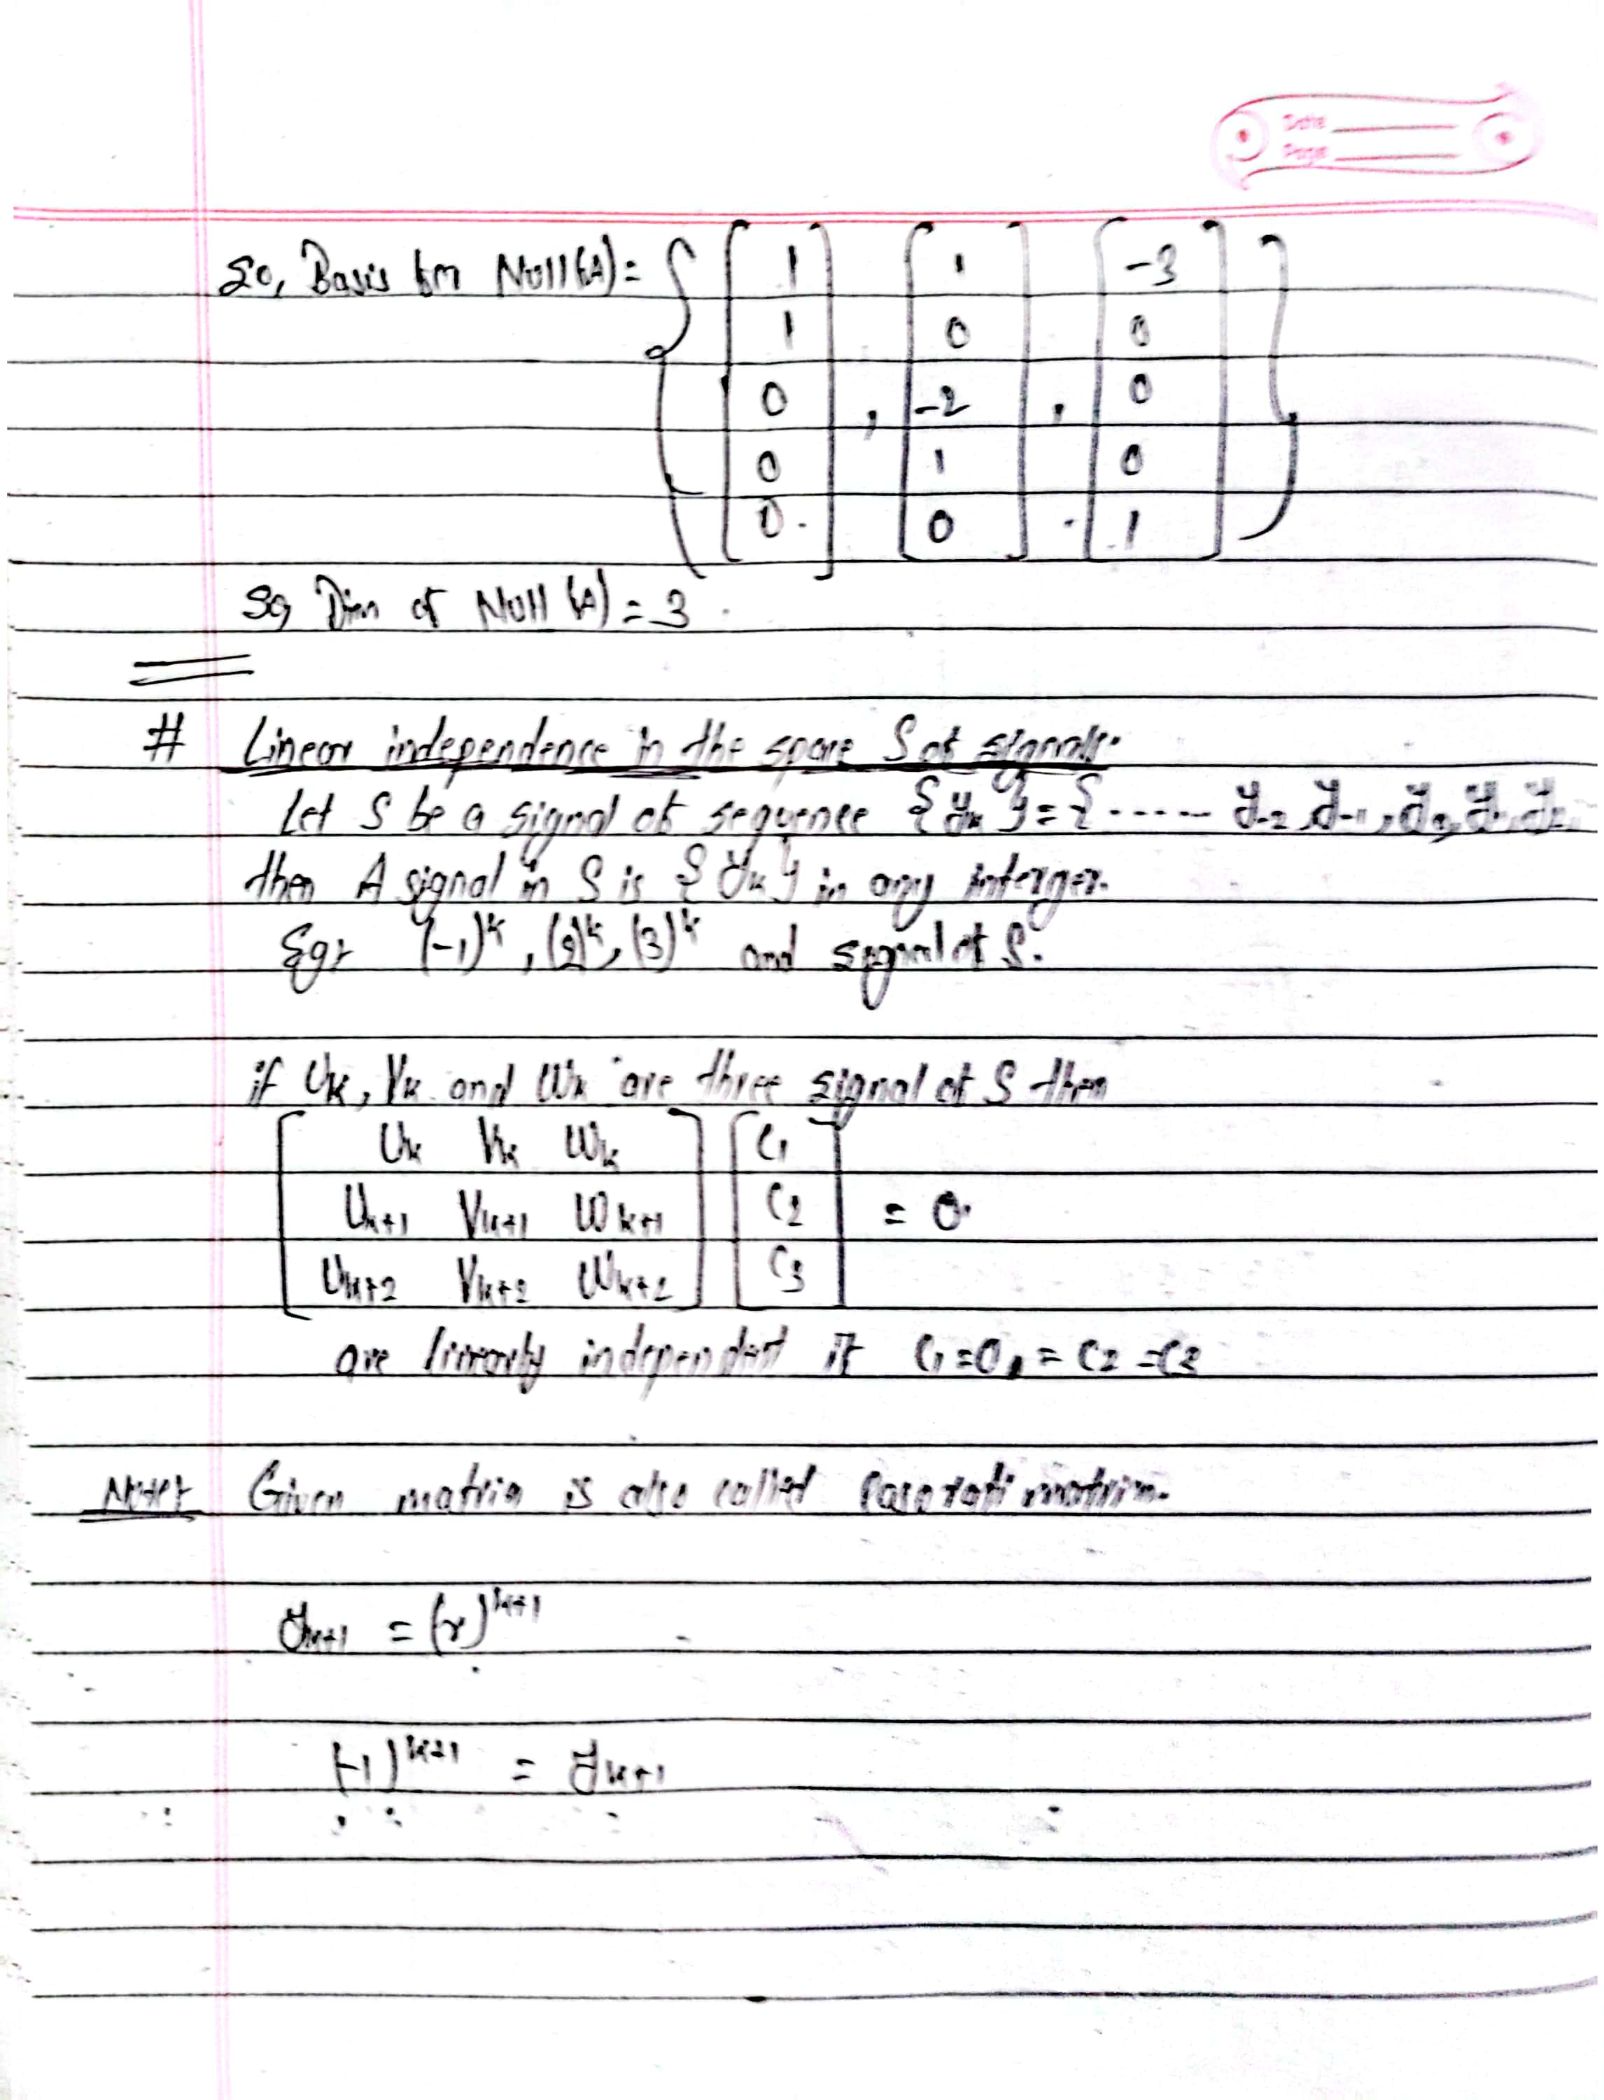 Date
Page
So, Basis for Null(A) = { [1 1 0 0 0], [1 0 -2 1 0], [-3 0 0 0 1] }
So, Dim of Null (A) = 3
# Linear independence in the space S of signals.
Let S be a signal of sequence {yk} = {...... y-2, y-1, y0, y1, y2
then A signal in S is {yk} in any interger.
Eg:- (-1)^k, (2)^k, (3)^k and signal of S.
if Uk, Vk and Wk are three signal of S then
[Uk Vk Wk] [C1]
[Uk+1 Vk+1 Wk+1] [C2] = 0.
[Uk+2 Vk+2 Wk+2] [C3]
are linearly independent if C1 = 0, = C2 = C3
Note:- Given matrix is also called Casorati matrix.
yk+1 = (r)^k+1
(-1)^k+1 = yk+1